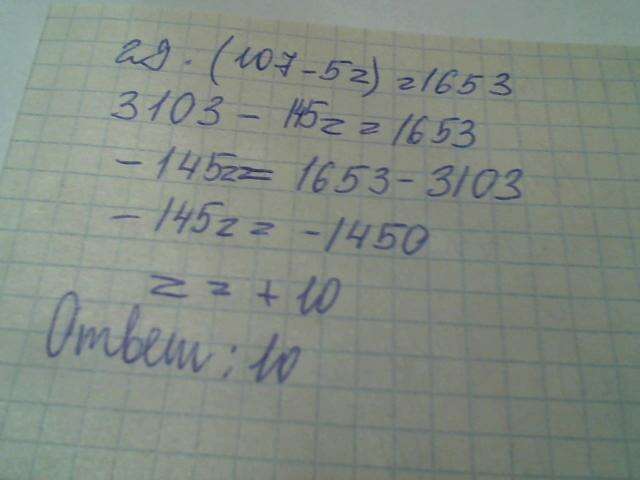 29 · (107 - 5z) = 1653
3103 - 145z = 1653
- 145z = 1653 - 3103
- 145z = -1450
z = + 10
Ответ: 10